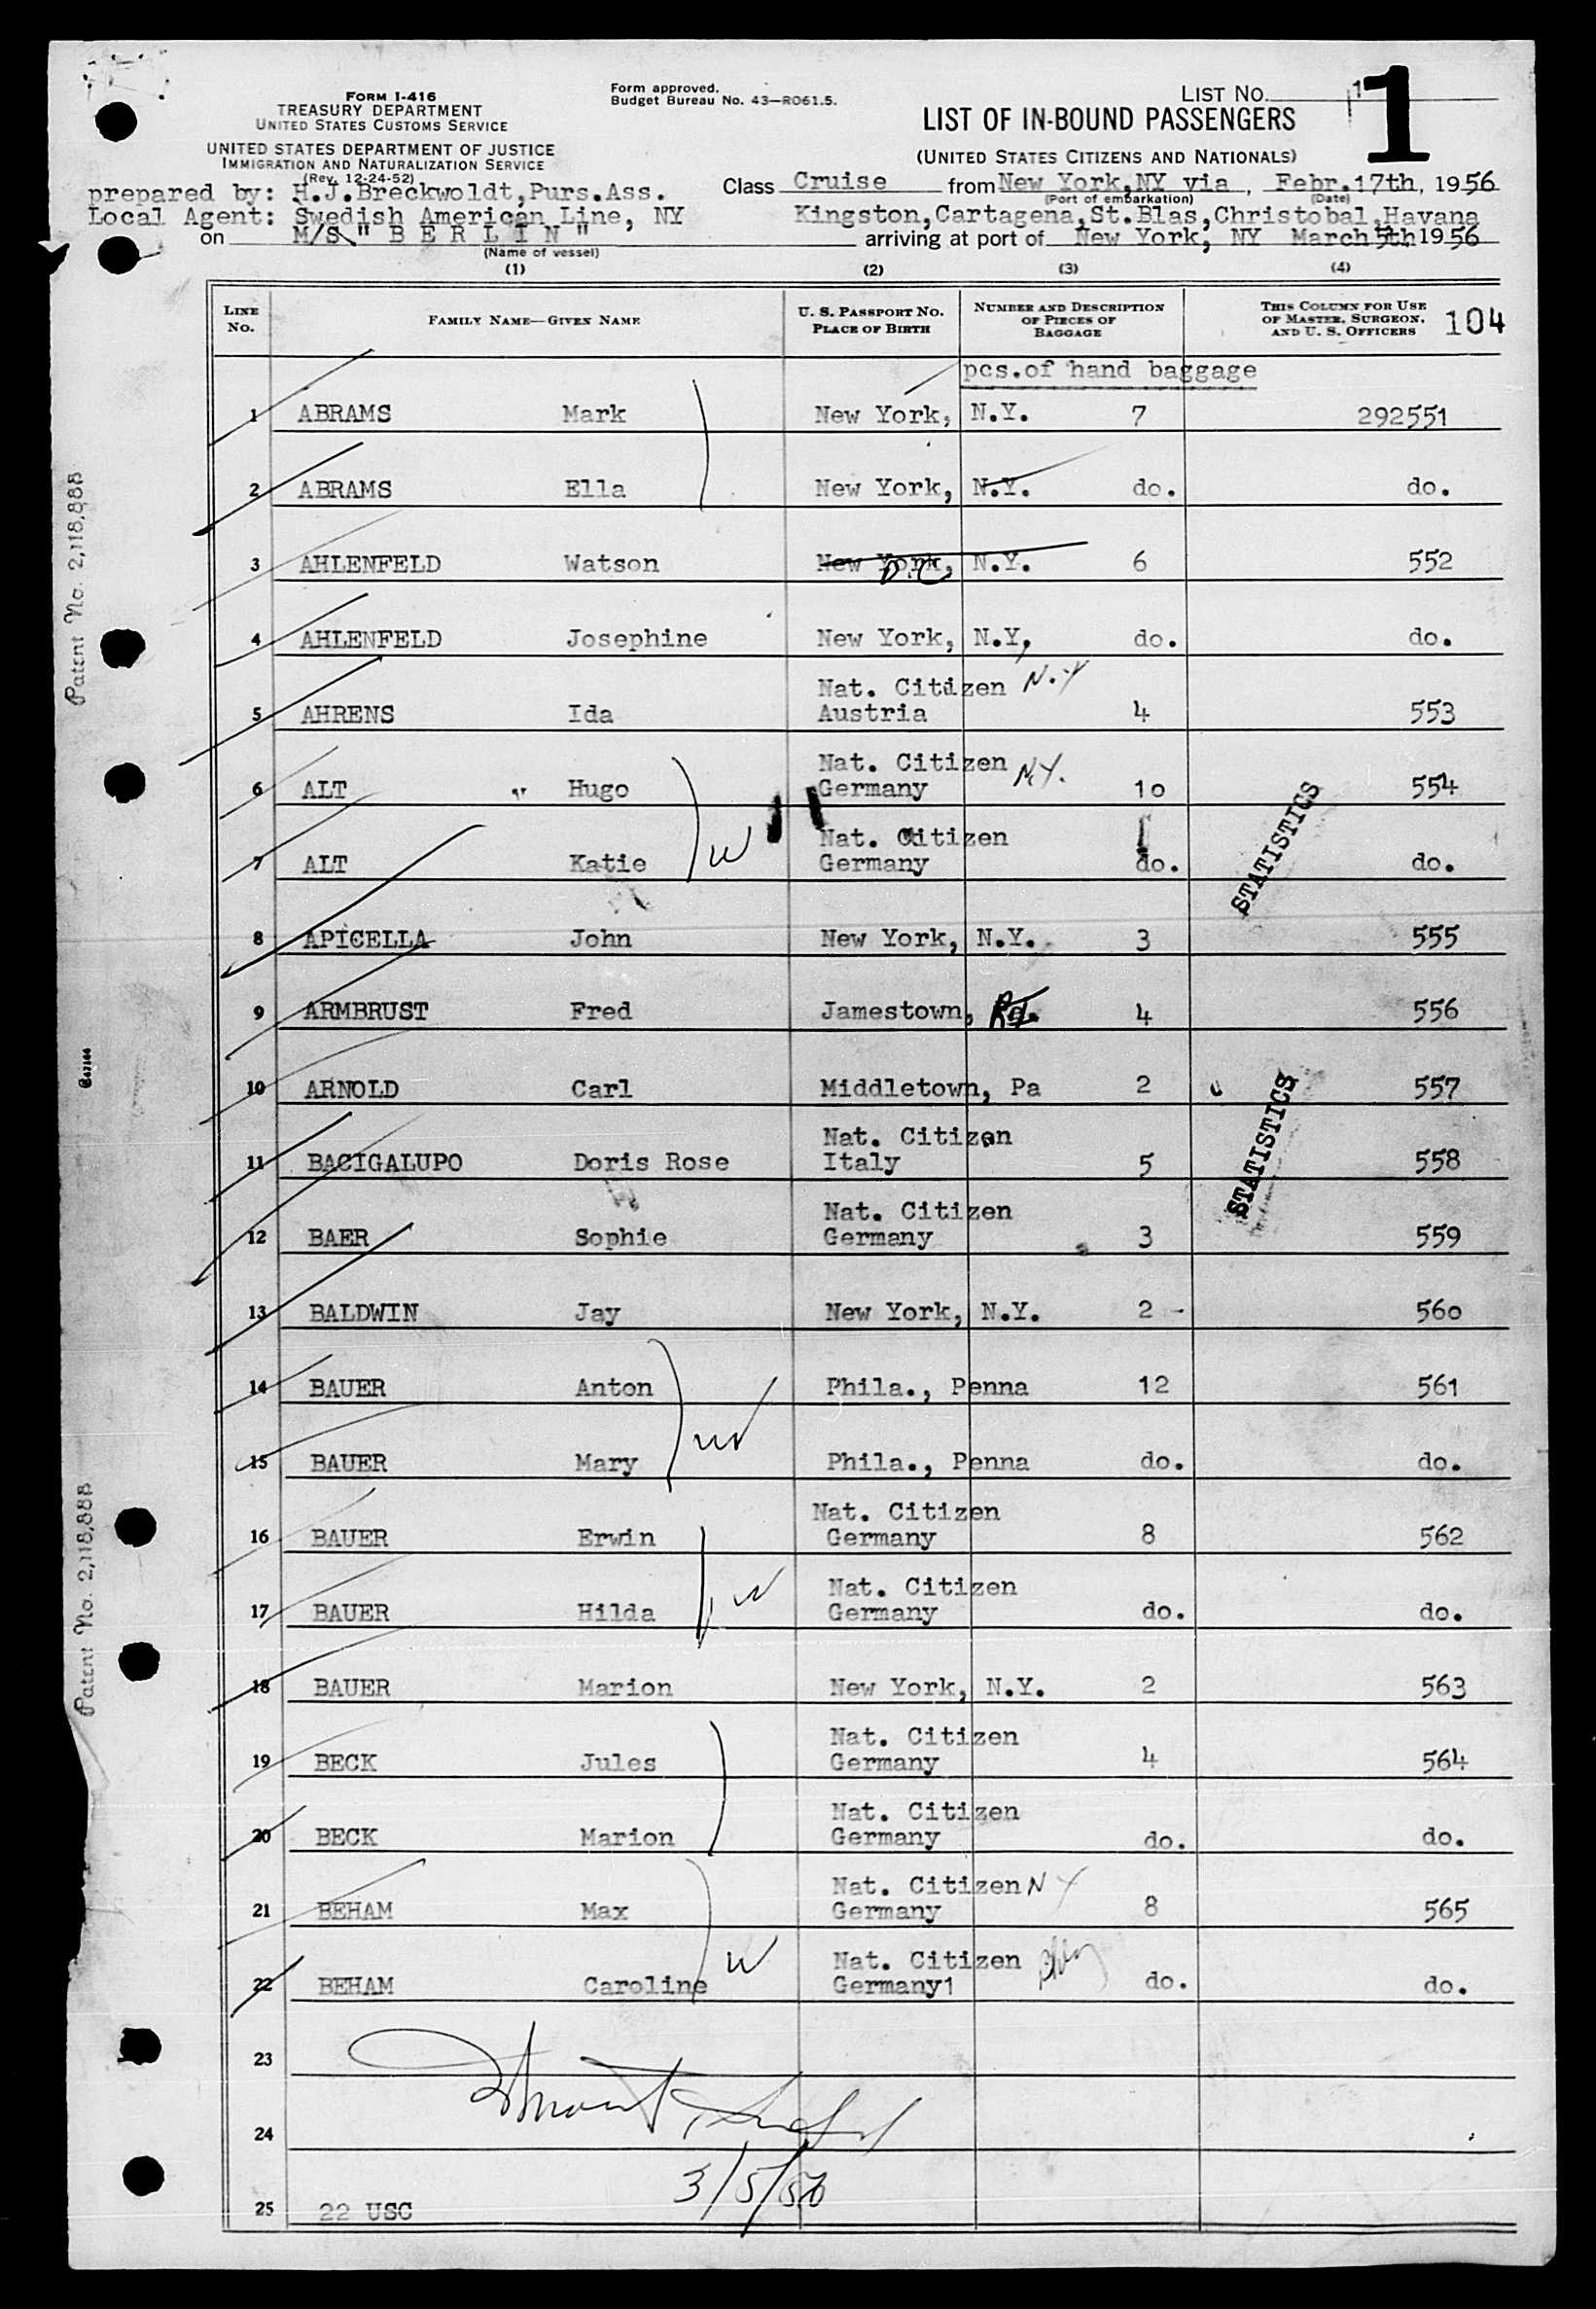 FORM I-416
TREASURY DEPARTMENT
UNITED STATES CUSTOMS SERVICE
UNITED STATES DEPARTMENT OF JUSTICE
IMMIGRATION AND NATURALIZATION SERVICE
(Rev. 12-24-52)
Form approved.
Budget Bureau No. 43—RO61.5.
LIST NO. 1
1
LIST OF IN-BOUND PASSENGERS
(UNITED STATES CITIZENS AND NATIONALS)
prepared by: H.J.Breckwoldt,Purs.Ass.
Class Cruise from New York,NY via , Febr.17th, 1956
(Port of embarkation) (Date)
Local Agent: Swedish American Line, NY
Kingston,Cartagena,St.Blas,Christobal,Havana
on M/S " B E R L I N "
(Name of vessel)
arriving at port of New York, NY March 5th 1956
(1) (2) (3) (4)
LINE NO. FAMILY NAME—GIVEN NAME U. S. PASSPORT NO. PLACE OF BIRTH NUMBER AND DESCRIPTION OF PIECES OF BAGGAGE THIS COLUMN FOR USE OF MASTER, SURGEON, AND U. S. OFFICERS 104
pcs.of hand baggage
1 ABRAMS Mark New York, N.Y. 7 292551
2 ABRAMS Ella New York, N.Y. do. do.
3 AHLENFELD Watson New York, N.Y. 6 552
D.C.
4 AHLENFELD Josephine New York, N.Y, do. do.
Nat. Citizen N.Y
5 AHRENS Ida Austria 4 553
Nat. Citizen N.Y.
6 ALT Hugo Germany 10 554
Nat. Citizen
7 ALT Katie Germany do. do.
W
STATISTICS
8 APICELLA John New York, N.Y. 3 555
9 ARMBRUST Fred Jamestown, 4 556
10 ARNOLD Carl Middletown, Pa 2 557
Nat. Citizen
11 BACIGALUPO Doris Rose Italy 5 558
STATISTICS
Nat. Citizen
12 BAER Sophie Germany 3 559
13 BALDWIN Jay New York, N.Y. 2 - 560
14 BAUER Anton Phila., Penna 12 561
15 BAUER Mary Phila., Penna do. do.
Nat. Citizen
16 BAUER Erwin Germany 8 562
Nat. Citizen
17 BAUER Hilda Germany do. do.
18 BAUER Marion New York, N.Y. 2 563
Nat. Citizen
19 BECK Jules Germany 4 564
Nat. Citizen
20 BECK Marion Germany do. do.
Nat. Citizen N Y
21 BEHAM Max Germany 8 565
Nat. Citizen
22 BEHAM Caroline Germany1 do. do.
W
23
24
3/5/56
25 22 USC
Patent No. 2,118,888
Patent No. 2,118,888